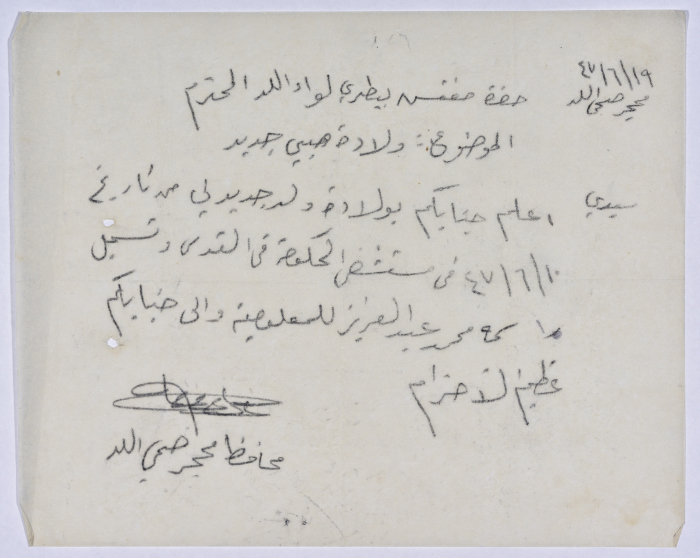 ٤٧/٦/١٩
محجر صحي اللد
حضرة مفتش بيطري لواء اللد المحترم
الموضوع :: ولادة صبي جديد
سيدي
اعلم جنابكم بولادة ولد جديد لي من تاريخ
٤٧/٦/١٠ في مستشفى الحكومة في القدس وتسجل
اسمه محمد عبد العزيز للمعلومية والى جنابكم
عظيم الاحترام
محافظ محجر صحي اللد